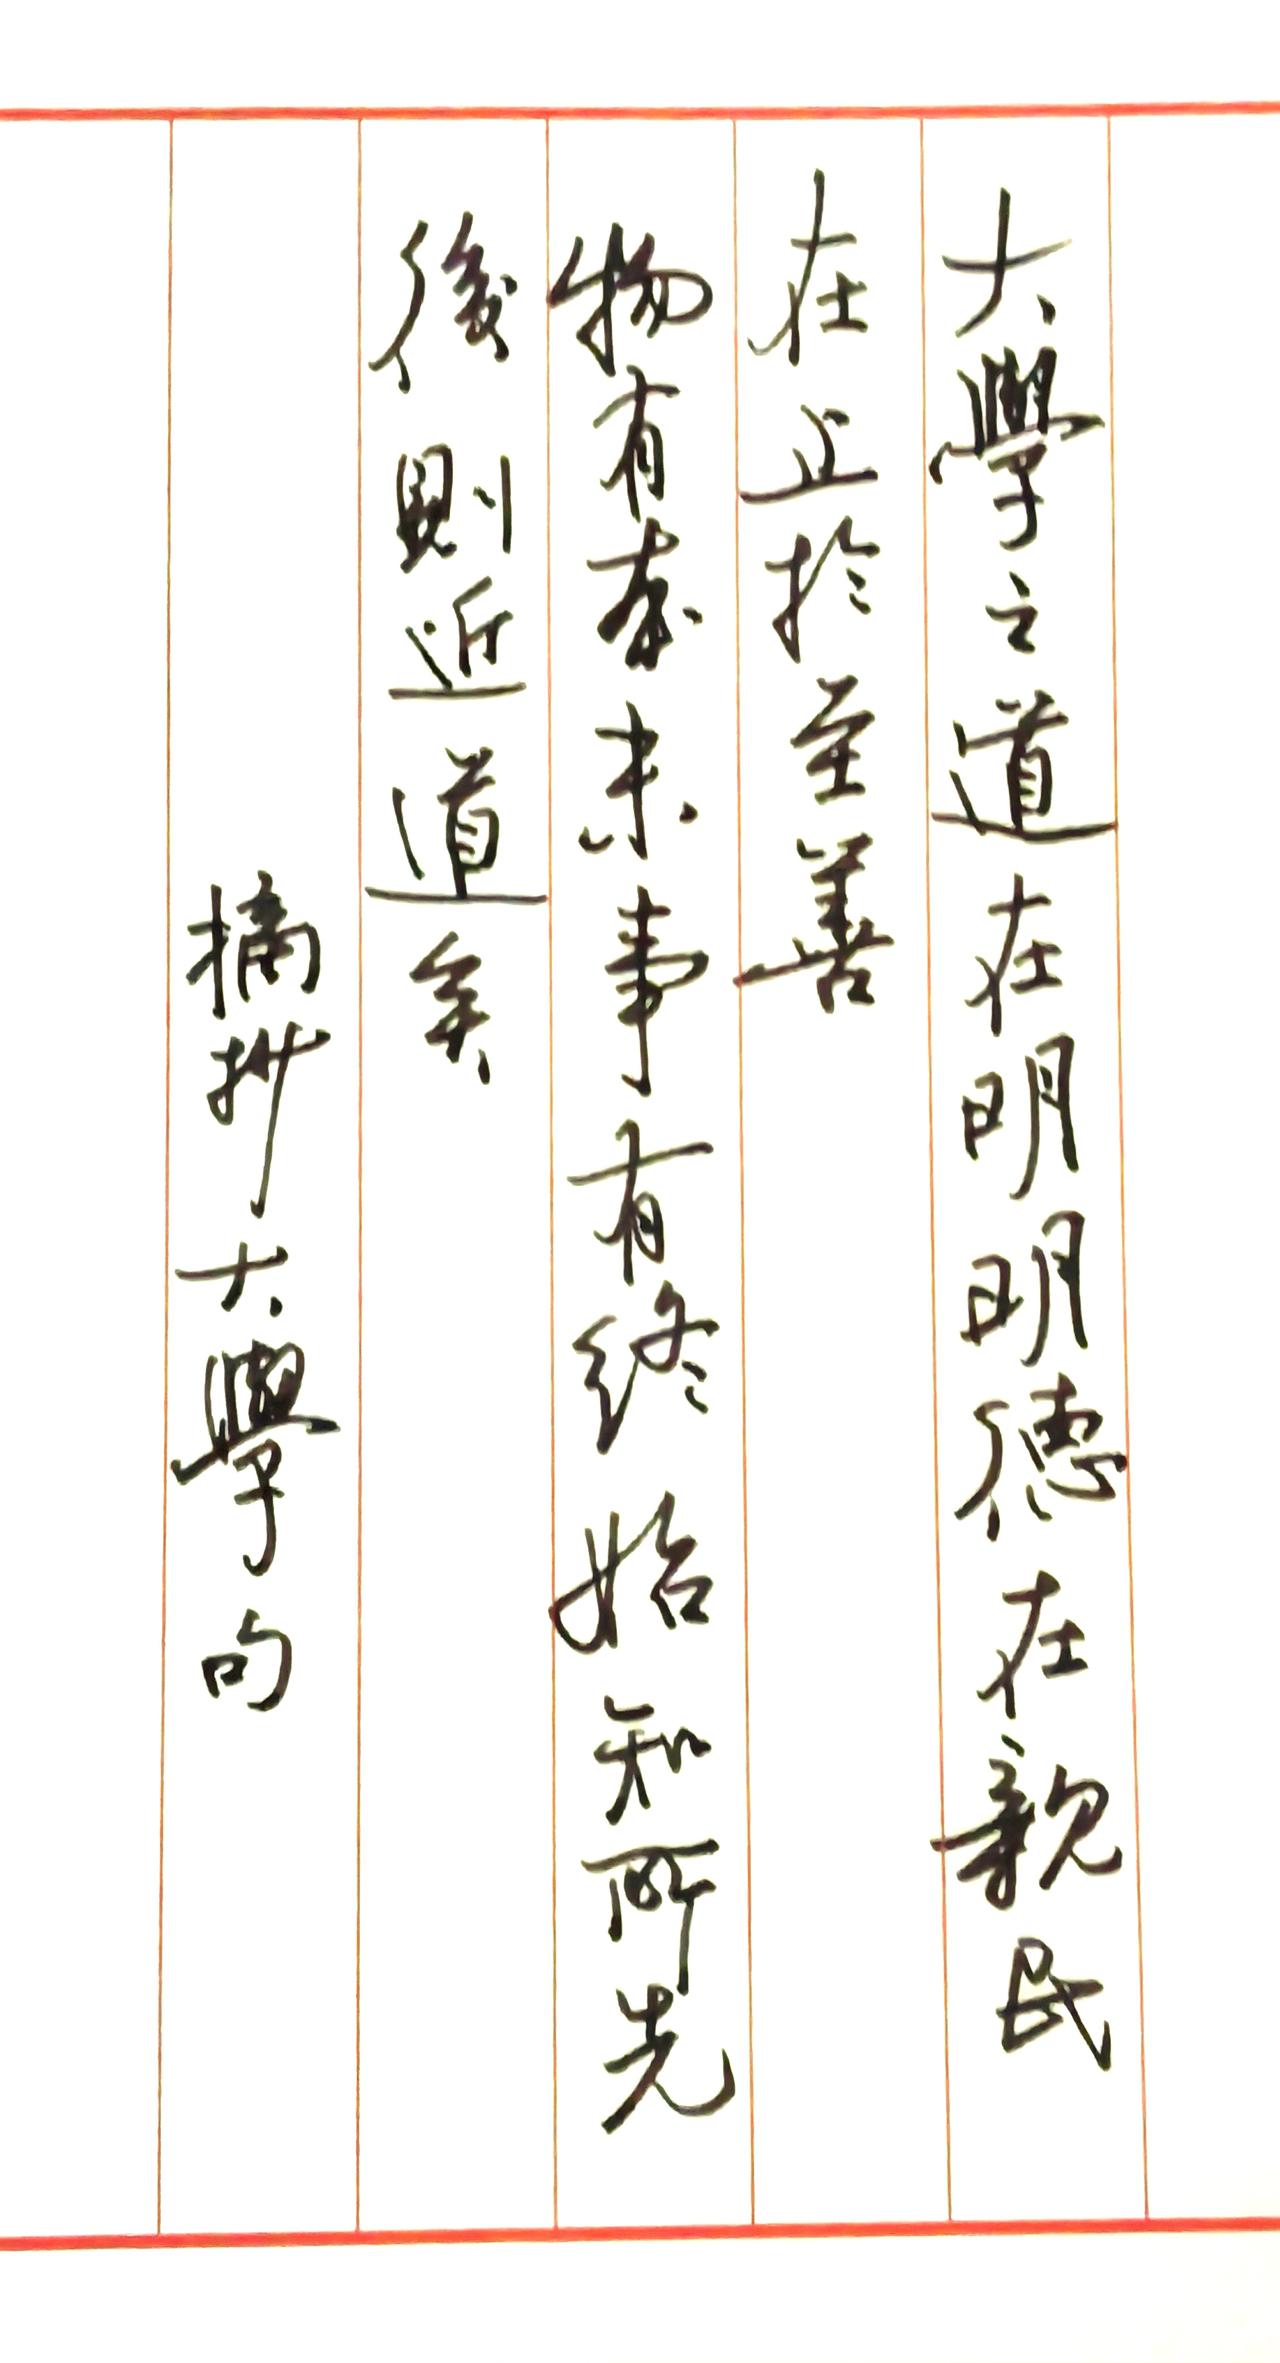 大學之道在明明德在親民
在止於至善
物有本末事有終始知所先
後則近道矣
摘抄大學句